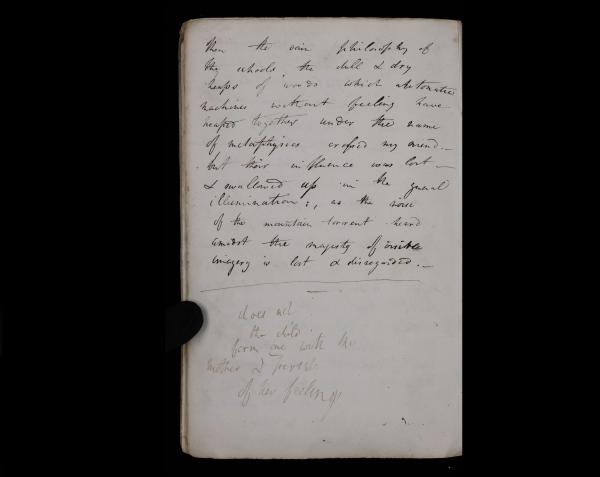 Then the vain philosophy of
the schools, the dull & dry
heaps of words which automatic
machines without feeling have
heaped together under the name
of metaphysics crossed my mind –
but their influence was lost –
& swallowed up in the general
illumination:, as the noise
of the mountain torrent heard
amidst the majesty of visible
imagery is lost & disregarded. –
does not
the child
form one with the
mother &
of her feelings